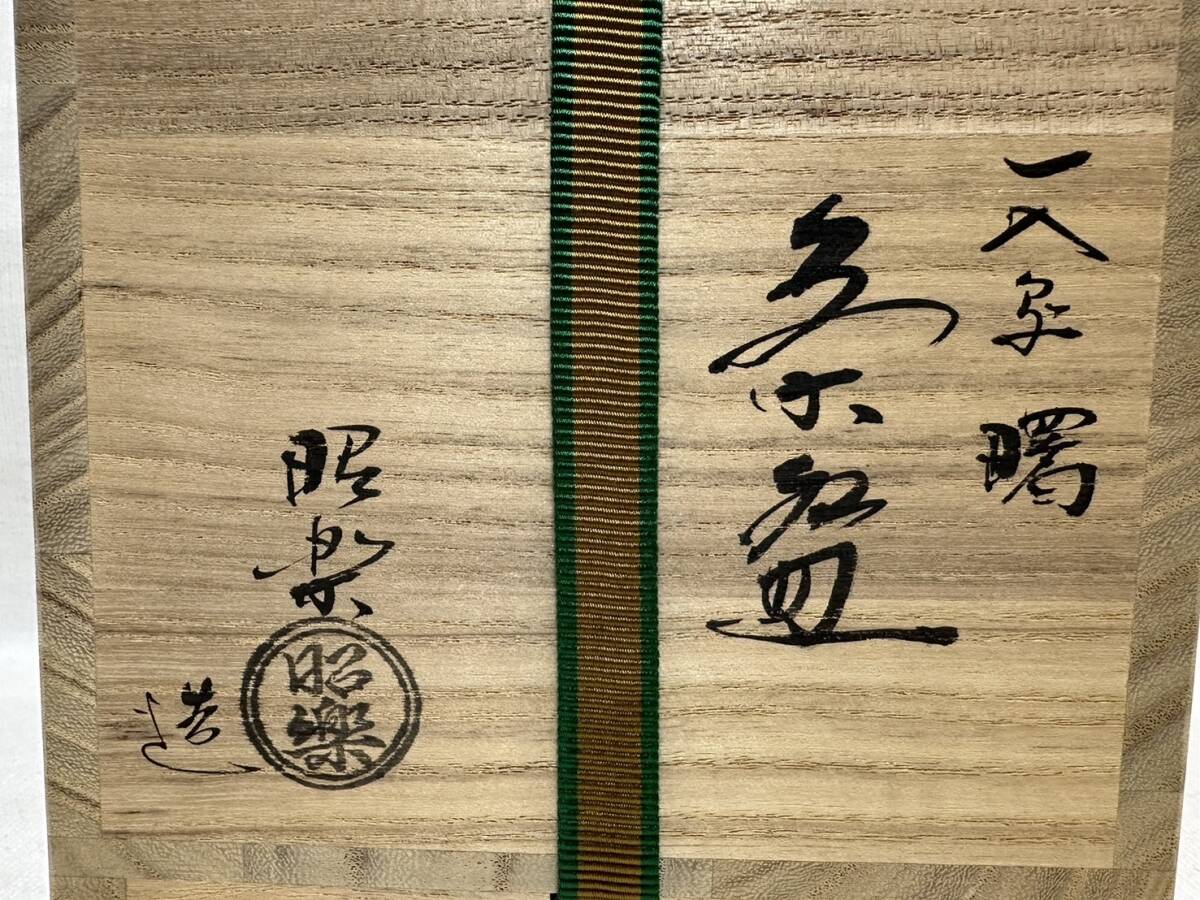 一入写 曙
茶盌
昭楽
昭樂
造